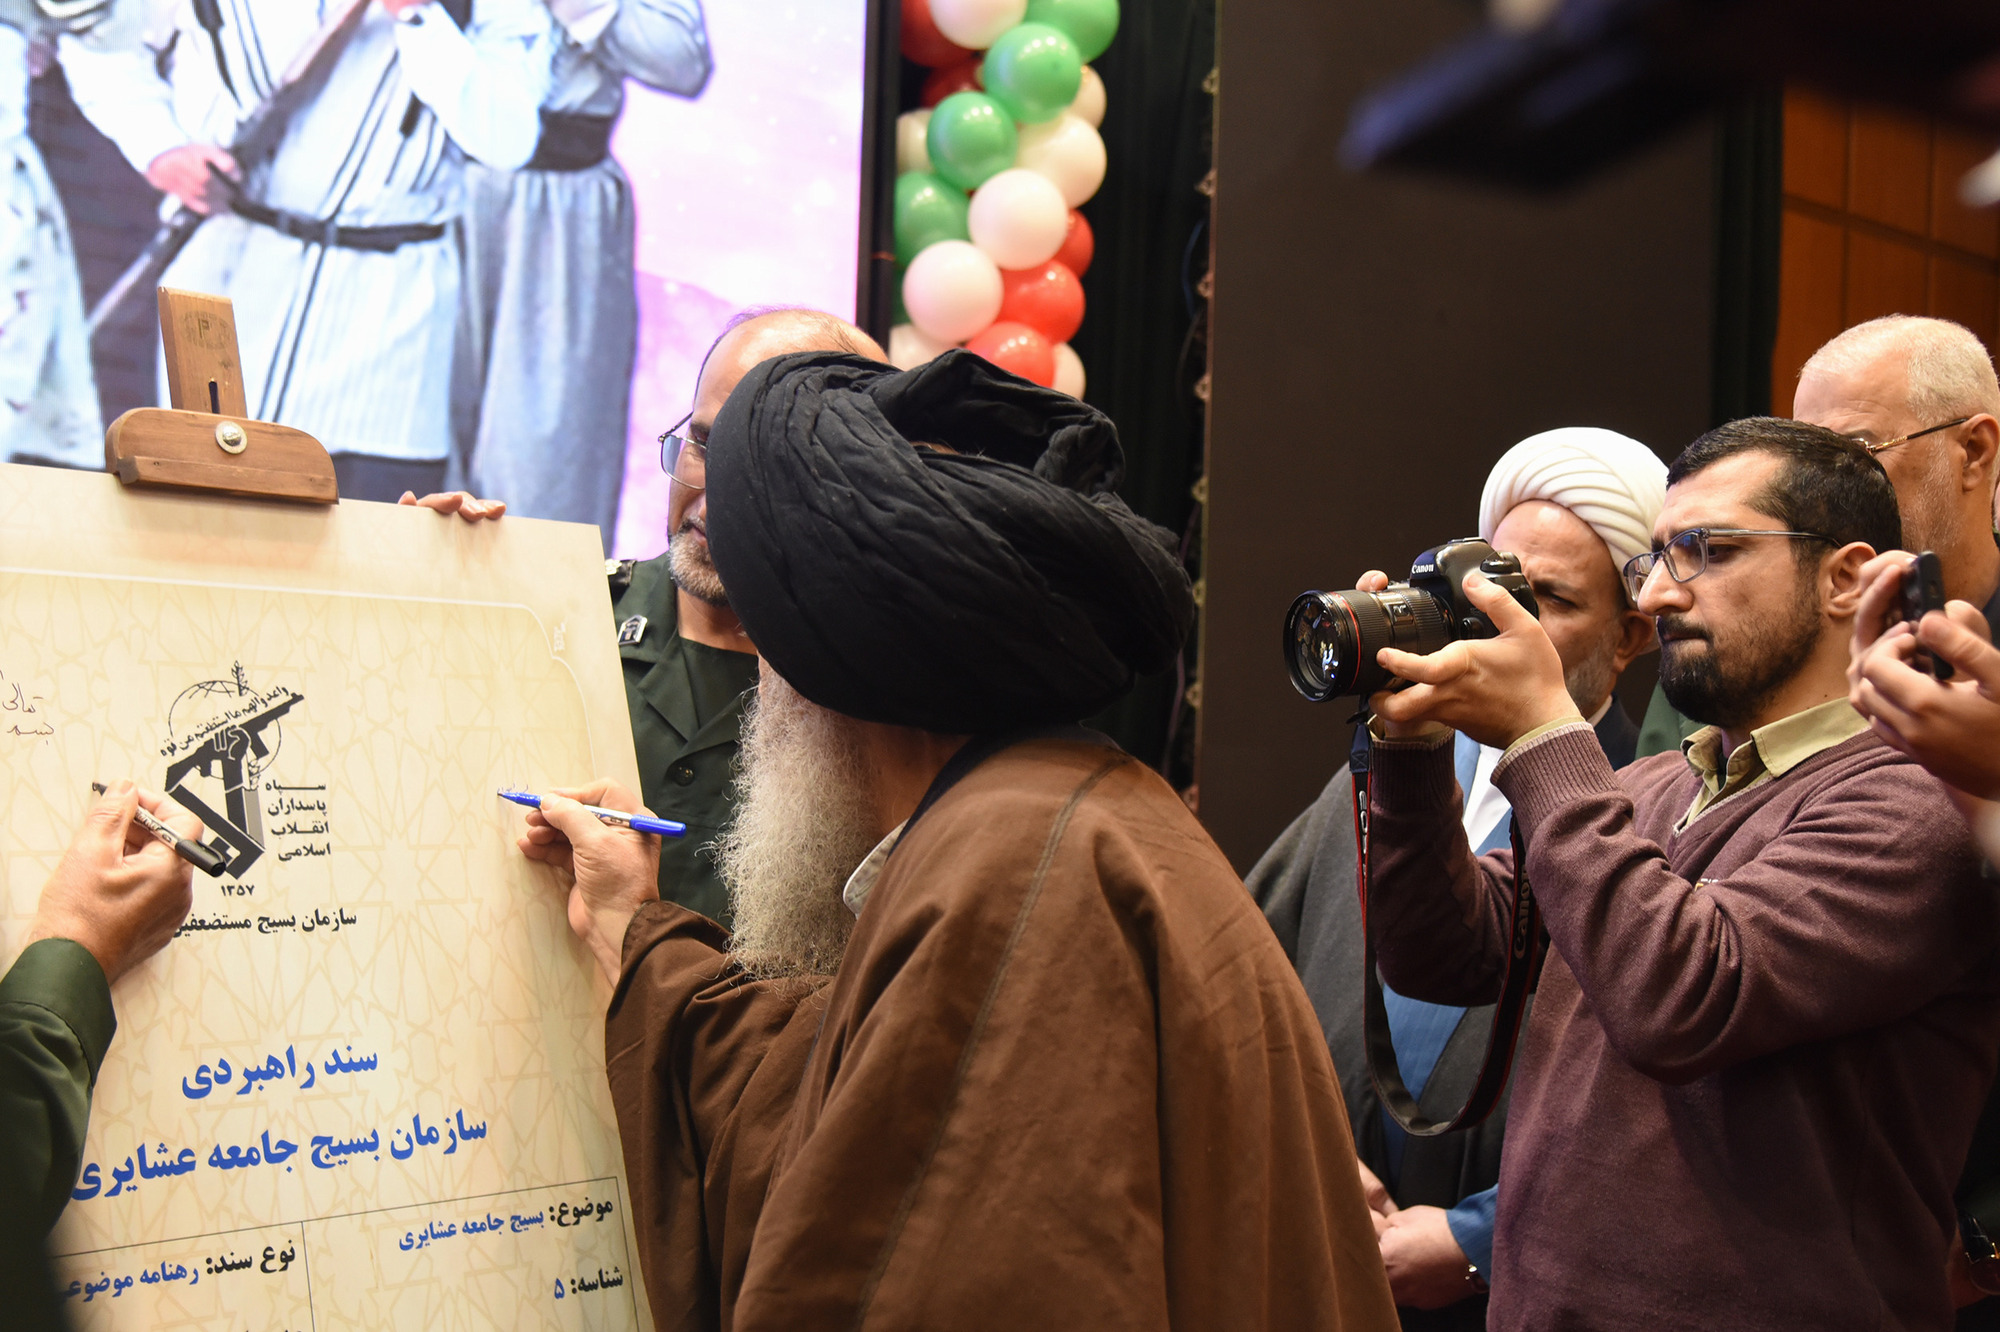 بسمه تعالی
واعدوا لهم ما استطعتم من قوة
سپاه
پاسداران
انقلاب
اسلامی
۱۳۵۷
سازمان بسیج مستضعفین
سند راهبردی
سازمان بسیج جامعه عشایری
موضوع: بسیج جامعه عشایری
نوع سند: رهنامه موضوع
شناسه: ۵
Canon
Canon
EOS 5